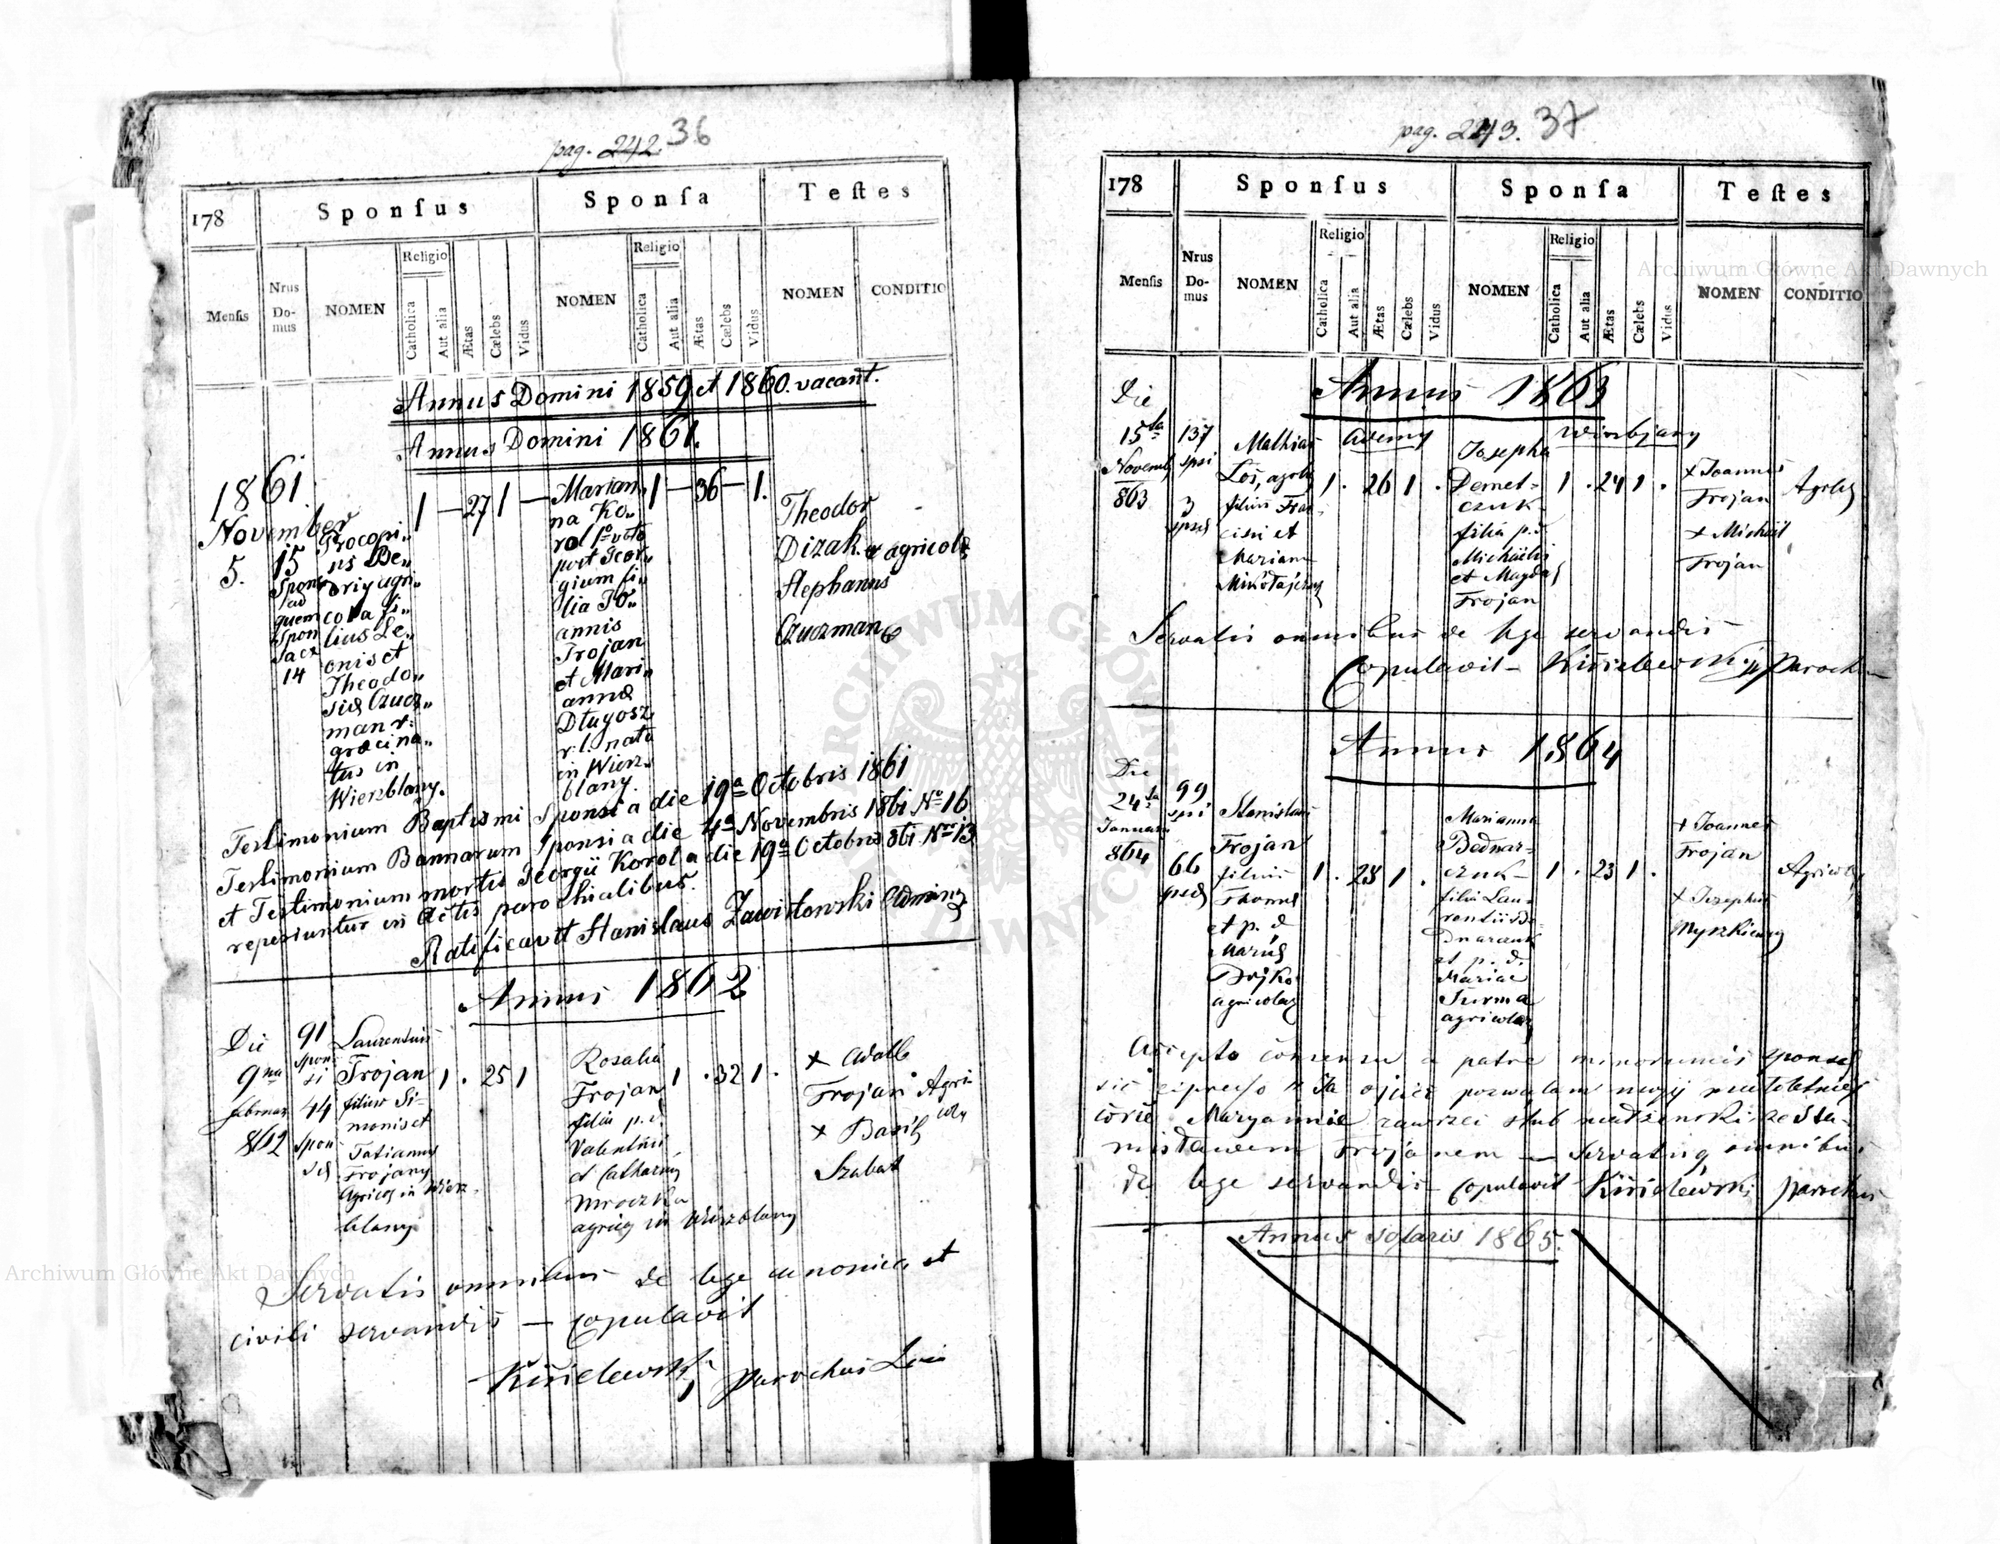 pag. 242. 36
178
Sponſus
Sponſa
Teſtes
Menſis
Nrus Do-mus
NOMEN
Religio
Catholica
Aut alia
Ætas
Cælebs
Vidus
NOMEN
Religio
Catholica
Aut alia
Ætas
Cælebs
Vidus
NOMEN
CONDITIO
Annus Domini 1859 et 1860. vacant.
Annus Domini 1861.
1861
November
5.
15
Sponsi
ad
quem
Spon
sa ex
14
Procopi„
us De„
agri„
cola fi„
lius Le„
onis et
Theodo„
siæ Czucz„
man r.
græci na„
tus in
Wierzblany.
1 — 27 1 —
Marian„
na Ko„
rol 1º voto
post Geor„
gium fi„
lia Jo„
annis
Trojan
et Mari„
annæ
Długosz
r. l. nata
in Wierz„
blany.
1 — 36 — 1.
Theodor
Dizak agricolæ
Stephanus
Czuczman
Testimonium Baptismi Sponsi a die 19ª Octobris 1861
Testimonium Bannorum Sponsi a die 4ª Novembris 1861 Nº 16
et Testimonium mortis Georgii Korol a die 19ª Octobris 861 Nro 13
reperiuntur in Actis parochialibus.
Ratificavit Stanislaus Zawistowski Admin
Annus 1862
Die
9na
februar
862
91
Spon
si
44
Spon
sæ
Laurentius
Trojan
filius Si-
monis et
Tatianny
Trojany
Agricol in Wierz
blany
1 . 25 1
Rosalia
Trojan
filia p. d.
Valentini
et Catharinæ
Mroczka
agricol in Wierzblany
1 . 32 1 .
+ Adalb
Trojan Agri
colæ
+ Basil
Szabat
Servatis omnibus de lege canonica et
civili servandis — copulavit
Kisielewski parochus Loci
pag. 243. 37
178
Sponſus
Sponſa
Teſtes
Menſis
Nrus Do-mus
NOMEN
Religio
Catholica
Aut alia
Ætas
Cælebs
Vidus
NOMEN
Religio
Catholica
Aut alia
Ætas
Cælebs
Vidus
NOMEN
CONDITIO
Annus 1863
Die
15ta
Novemb
863
137
spsi
3
spsæ
Adamy
Wirzbjany
Mathias
Łoś, agricol
filius Fran-
cisci et
Mariann
Mikołajczuk
1 . 26 1 .
Josepha
Demet-
czuk
filia p. d.
Michaelis
et Magdal
Trojan
1 . 24 1 .
+ Joannes
Trojan
+ Michael
Trojan
Agricol
Servatis omnibus de lege servandis
Copulavit — Kisielewski Paroch
Annus 1864
Die
24ta
Januar
864
99
spsi
66
spsæ
Stanislaus
Trojan
filius
Thomæ
et p. d.
Mariæ
Bojko
agricolar
1 . 28 1 .
Marianna
Bednar-
czuk
filia Lau-
rentii Be-
dnarczuk
et p. d.
Mariae
Surma
agricolar
1 . 23 1 .
+ Joannes
Trojan
+ Josephus
Myszkiewicz
Agricol
Accepto consensu a patre minorennis sponsæ
sic expresso: Ja ojciec pozwalam mojej małoletniej
córce Maryannie zawrzeć ślub małżeński ze Sta-
nisławem Trojanem — Servatisq omnibus
de lege servandis Copulavit Kisielewski parochus
Annus solaris 1865.
Archiwum Główne Akt Dawnych
Archiwum Główne Akt Dawnych
ARCHIWUM GŁÓWNE AKT DAWNYCH